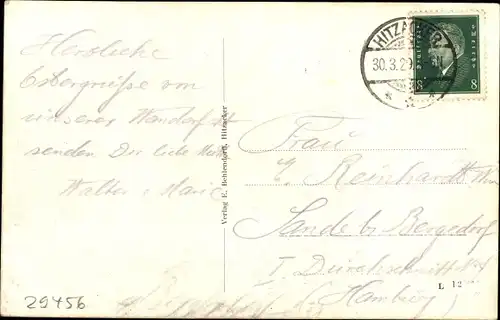 Herzliche
Ostergrüße von
unserer
senden Dir liebe
Walter u. Marie
Verlag E. Behlendorff, Hitzacker
HITZACKER
30.3.29
8 8
Frau
E. Reinhardt
Sande b. Bergedorf
I. Durchschnitt
(Hamburg)
L 12
29456